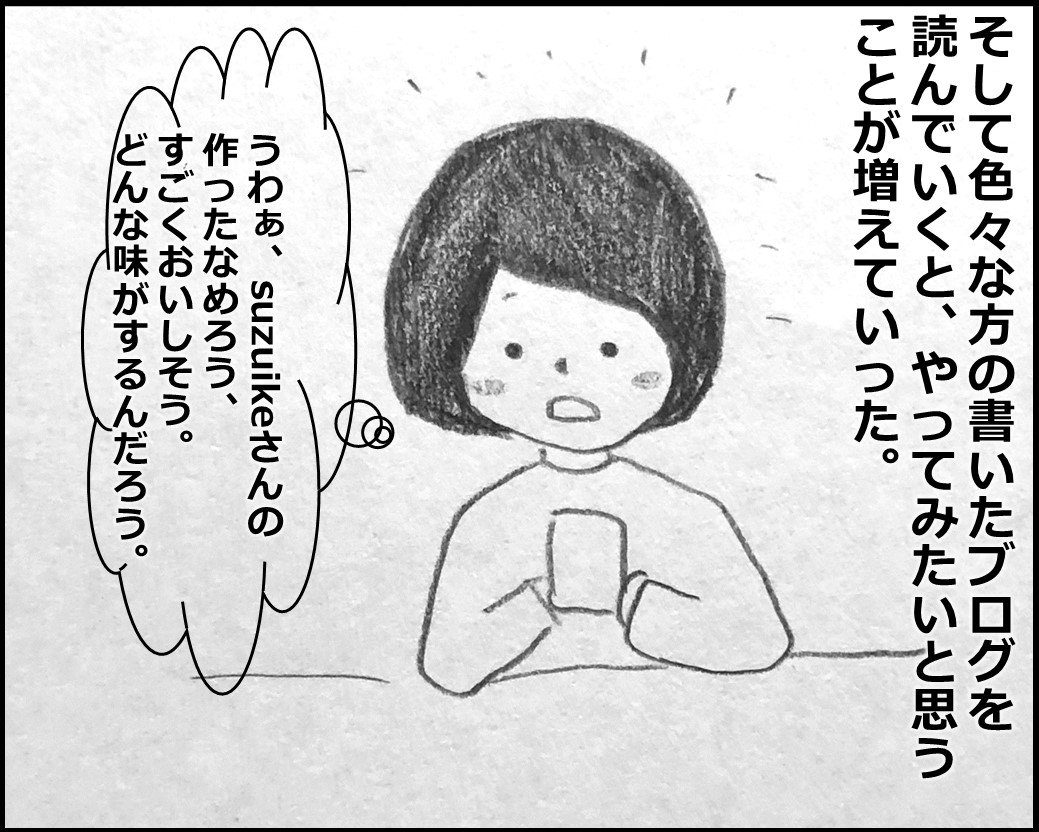 そして色々な方の書いたブログを
読んでいくと、やってみたいと思う
ことが増えていった。
うわぁ、suzuikeさんの
作ったなめろう、
すごくおいしそう。
どんな味がするんだろう。